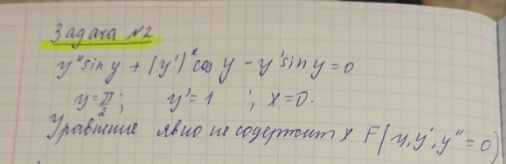 Задача №2
y" sin y + (y')² cos y - y' sin y = 0
y = π/2; y' = 1; x = 0.
Уравнение явно не содержит x F(y, y', y" = 0)